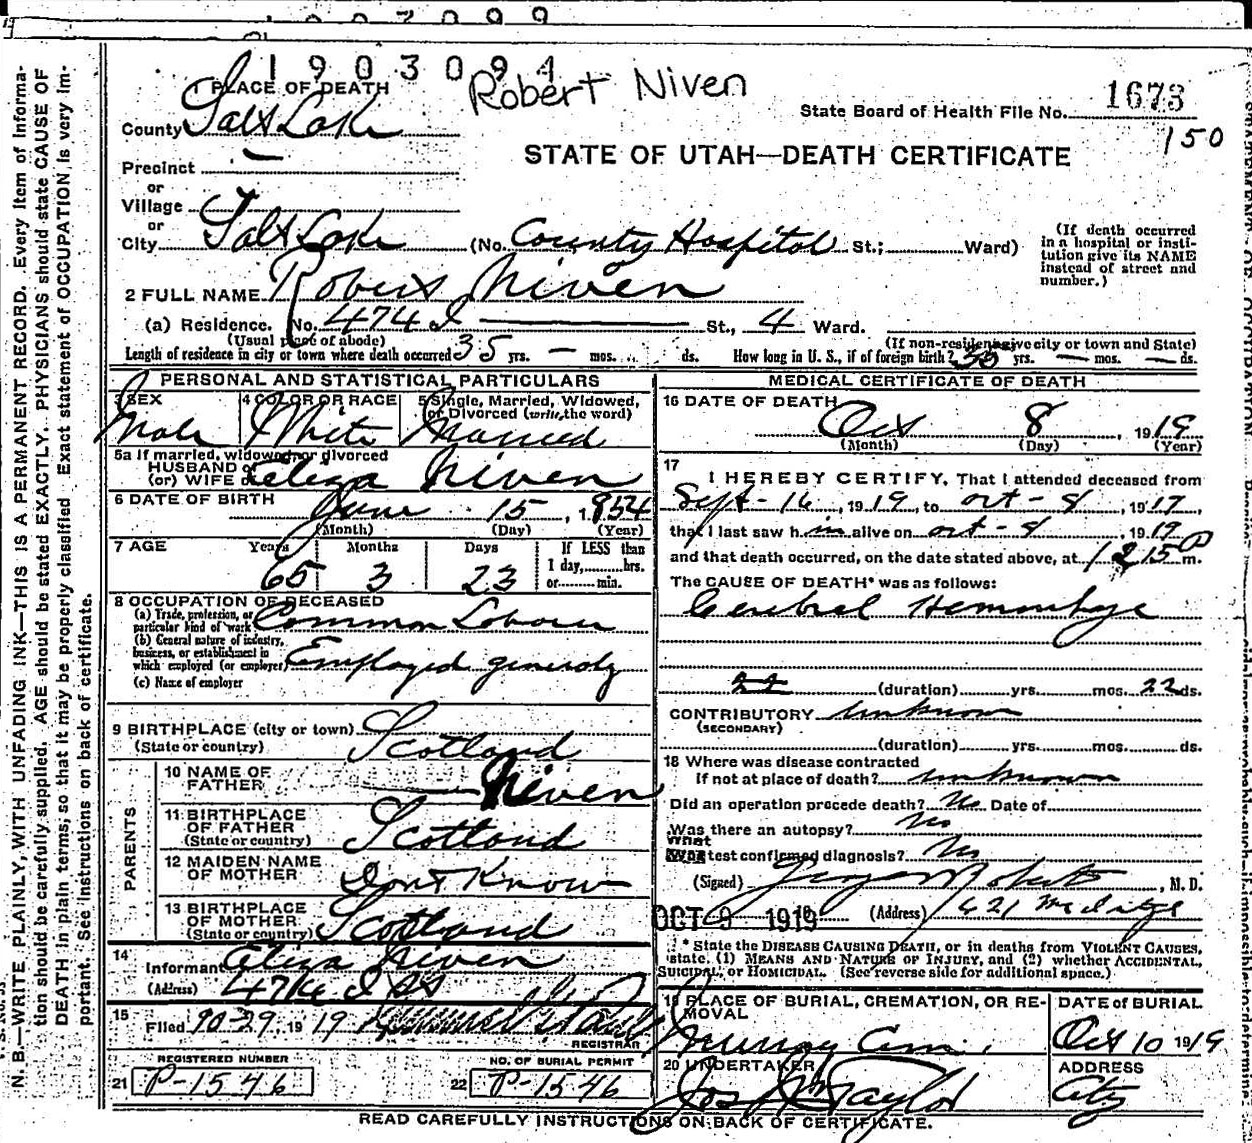 1903094
Robert Niven
1 PLACE OF DEATH
State Board of Health File No. 1673
150
County Salt Lake
STATE OF UTAH—DEATH CERTIFICATE
Precinct —
or
Village
or
City Salt Lake (No. County Hospital St.; Ward)
(If death occurred in a hospital or institution give its NAME instead of street and number.)
2 FULL NAME Robert Niven
(a) Residence. No. 474 I St., 4 Ward.
(Usual place of abode) (If non-resident give city or town and State)
Length of residence in city or town where death occurred 35 yrs. — mos. ds. How long in U. S., if of foreign birth? 35 yrs. — mos. — ds.
PERSONAL AND STATISTICAL PARTICULARS
3 SEX Male
4 COLOR OR RACE White
5 Single, Married, Widowed, or Divorced (write the word) Married
5a If married, widowed or divorced
HUSBAND of
(or) WIFE of Eliza Niven
6 DATE OF BIRTH June 15, 1854
(Month) (Day) (Year)
7 AGE Years Months Days If LESS than
65 3 23 1 day,......hrs.
or......min.
8 OCCUPATION OF DECEASED
(a) Trade, profession, or
particular kind of work Common Laborer
(b) General nature of industry,
business, or establishment in
which employed (or employer) Employed generaly
(c) Name of employer
9 BIRTHPLACE (city or town)
(State or country) Scotland
PARENTS
10 NAME OF
FATHER Niven
11 BIRTHPLACE
OF FATHER
(State or country) Scotland
12 MAIDEN NAME
OF MOTHER Dont Know
13 BIRTHPLACE
OF MOTHER
(State or country) Scotland
14 Informant Eliza Niven
(Address) 474 I St
15 Filed 10-29, 1919
REGISTRAR
REGISTERED NUMBER NO. OF BURIAL PERMIT
21 P-1546 22 P-1546
MEDICAL CERTIFICATE OF DEATH
16 DATE OF DEATH
Oct 8, 1919
(Month) (Day) (Year)
17
I HEREBY CERTIFY, That I attended deceased from
Sept-16, 1919, to oct-8, 1917,
that I last saw him alive on oct-8 1919
and that death occurred, on the date stated above, at 1215 P m.
The CAUSE OF DEATH* was as follows:
Cerebral Hemorrhage
22 (duration) yrs. mos. 22 ds.
CONTRIBUTORY unknown
(SECONDARY)
(duration) yrs. mos. ds.
18 Where was disease contracted
if not at place of death? unknown
Did an operation precede death? No Date of
Was there an autopsy? No
What
test confirmed diagnosis? No
(Signed) Roberts, M. D.
OCT 9 1919 (Address) 621
* State the DISEASE CAUSING DEATH, or in deaths from VIOLENT CAUSES,
state (1) MEANS AND NATURE OF INJURY, and (2) whether ACCIDENTAL,
SUICIDAL, or HOMICIDAL. (See reverse side for additional space.)
19 PLACE OF BURIAL, CREMATION, OR REMOVAL
Murray Cem.
DATE OF BURIAL
Oct 10 1919
20 UNDERTAKER
Jos Wm Taylor
ADDRESS
City
READ CAREFULLY INSTRUCTIONS ON BACK OF CERTIFICATE.
N. B.—WRITE PLAINLY, WITH UNFADING INK—THIS IS A PERMANENT RECORD. Every item of information should be carefully supplied. AGE should be stated EXACTLY. PHYSICIANS should state CAUSE OF DEATH in plain terms, so that it may be properly classified. Exact statement of OCCUPATION is very important. See instructions on back of certificate.